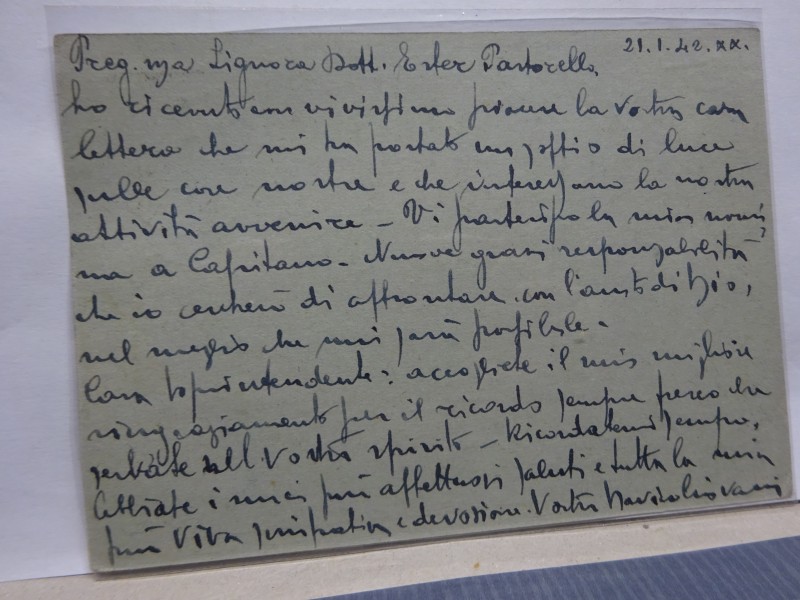 21.1.42.xx.
Preg.ma Signora Dott. Ester Pastorello,
ho ricevuto con vivissimo piacere la Vostra cara
lettera che mi ha portato un soffio di luce
sulle cose nostre e che interessano la nostra
attività avvenire - Vi partecipo la mia nomi
na a Capitano. Nuove gravi responsabilità
che io cercherò di affrontare con l'aiuto di Dio,
nel meglio che mi sarà possibile.
Cara Soprintendente: accogliete il mio migliore
ringraziamento per il ricordo sempre fresco che
serbate nell Vostro spirito - Ricordatemi sempre,
Abbiate i miei più affettuosi saluti e tutta la mia
più viva simpatia e devozione. Vostro